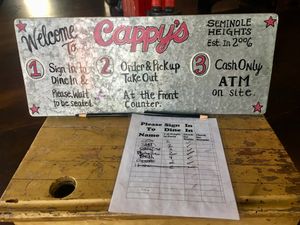 Welcome To
Cappy's
SEMINOLE
HEIGHTS
Est. In 2006
1 Sign In to
Dine In &
Please Wait
to be seated.
2 Order & Pick up
Take Out
At the Front
Counter.
3 Cash Only
ATM
on site.
Please Sign In
To Dine In
Name